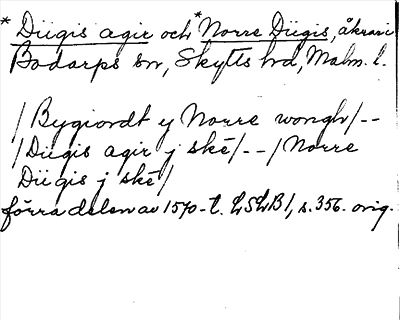 * Diigis agir och * Norre Diigis, åkrar i
Bodarps sn, Skytts hd, Malm. l.
/ Bygiordt y Norre wongh/--
/Diigis agir j skē/--/Norre
Diigis j skē/
förra delen av 1570-t. LSLB 1, s. 356. orig.